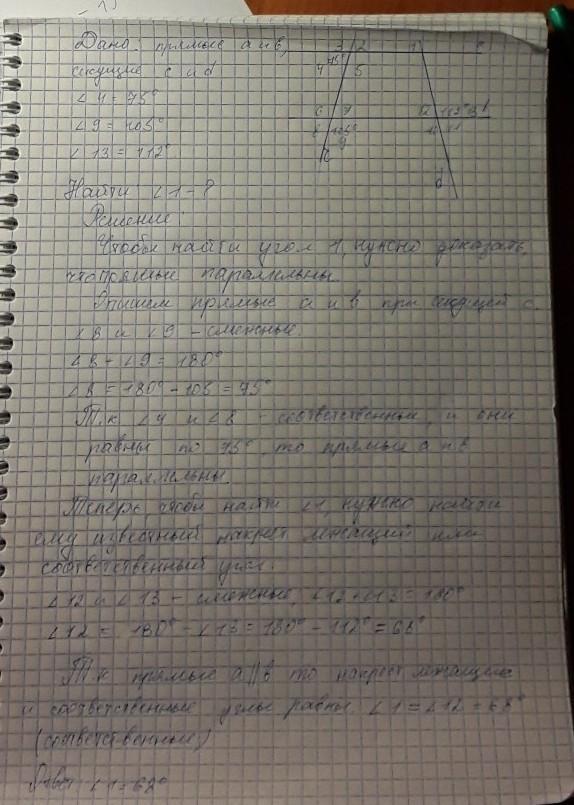 Дано: прямые a и b,
секущие c и d
∠4 = 75°
∠9 = 105°
∠13 = 112°
Найти: ∠1 - ?
Решение:
Чтобы найти угол 1, нужно доказать,
что прямые параллельны.
Опишем прямые a и b при секущей c.
∠8 и ∠9 - смежные.
∠8 + ∠9 = 180°
∠8 = 180° - 105 = 75°
Т.к. ∠4 и ∠8 - соответственные, и они
равны по 75°, то прямые a и b
параллельны.
Теперь чтобы найти ∠1, нужно найти
ему известный накрест лежащий или
соответственный угол.
∠12 и ∠13 - смежные, ∠12 + ∠13 = 180°
∠12 = 180° - ∠13 = 180° - 112° = 68°
Т.к. прямые a || b то накрест лежащие
и соответственные углы равны. ∠1 = ∠12 = 68°
(соответственные)
Ответ ∠1 = 62°
3 2 1
4 75° 5
6 7 12 112° 13 b
8 105° 11
9
c d